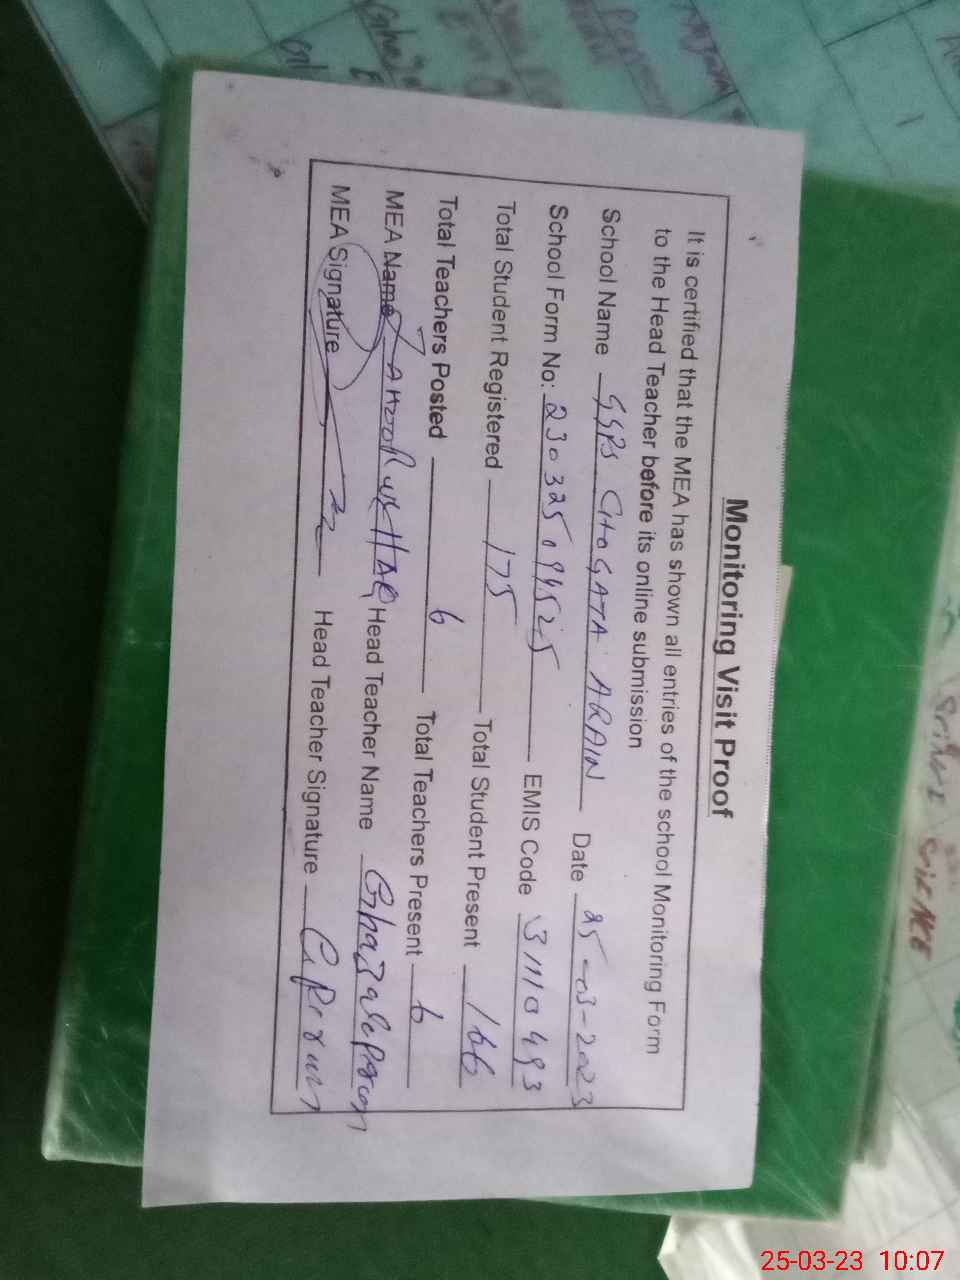 Monitoring Visit Proof
It is certified that the MEA has shown all entries of the school Monitoring Form
to the Head Teacher before its online submission
School Name GGPS CHOGATA ARAIN Date 25-03-2023
School Form No: 230325094525 EMIS Code 31110493
Total Student Registered 175 Total Student Present 166
Total Teachers Posted 6 Total Teachers Present 6
MEA Name Head Teacher Name Ghazala
MEA Signature Head Teacher Signature
SCIENCE
25-03-23 10:07